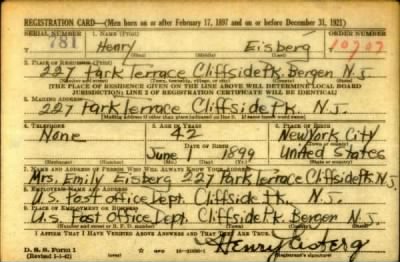 REGISTRATION CARD—(Men born on or after February 17, 1897 and on or before December 31, 1921)
SERIAL NUMBER 1. NAME (Print) ORDER NUMBER
T 781 Henry Eisberg 10707
(First) (Middle) (Last)
2. PLACE OF RESIDENCE (Print)
227 Park Terrace Cliffside Pk. Bergen N.J.
(Number and street) (Town, township, village, or city) (County) (State)
[THE PLACE OF RESIDENCE GIVEN ON THE LINE ABOVE WILL DETERMINE LOCAL BOARD
JURISDICTION; LINE 2 OF REGISTRATION CERTIFICATE WILL BE IDENTICAL]
3. MAILING ADDRESS
227 Park Terrace Cliffside Pk. N.J.
[Mailing address if other than place indicated on line 2. If same insert word same]
4. TELEPHONE 5. AGE IN YEARS 6. PLACE OF BIRTH
None 42 New York City
DATE OF BIRTH (Town or county)
June 1 1899 United States
(Mo.) (Day) (Yr.) (State or country)
7. NAME AND ADDRESS OF PERSON WHO WILL ALWAYS KNOW YOUR ADDRESS
Mrs. Emily Eisberg 227 Park Terrace Cliffside Pk N.J.
8. EMPLOYER'S NAME AND ADDRESS
U.S. Post Office Dept. Cliffside Pk. N.J.
9. PLACE OF EMPLOYMENT OR BUSINESS
U.S. Post Office Dept. Cliffside Pk. Bergen N.J.
(Number and street or R. F. D. number) (Town) (County) (State)
I AFFIRM THAT I HAVE VERIFIED ABOVE ANSWERS AND THAT THEY ARE TRUE.
D. S. S. Form 1
(Revised 1-1-42) (over)
Henry Eisberg